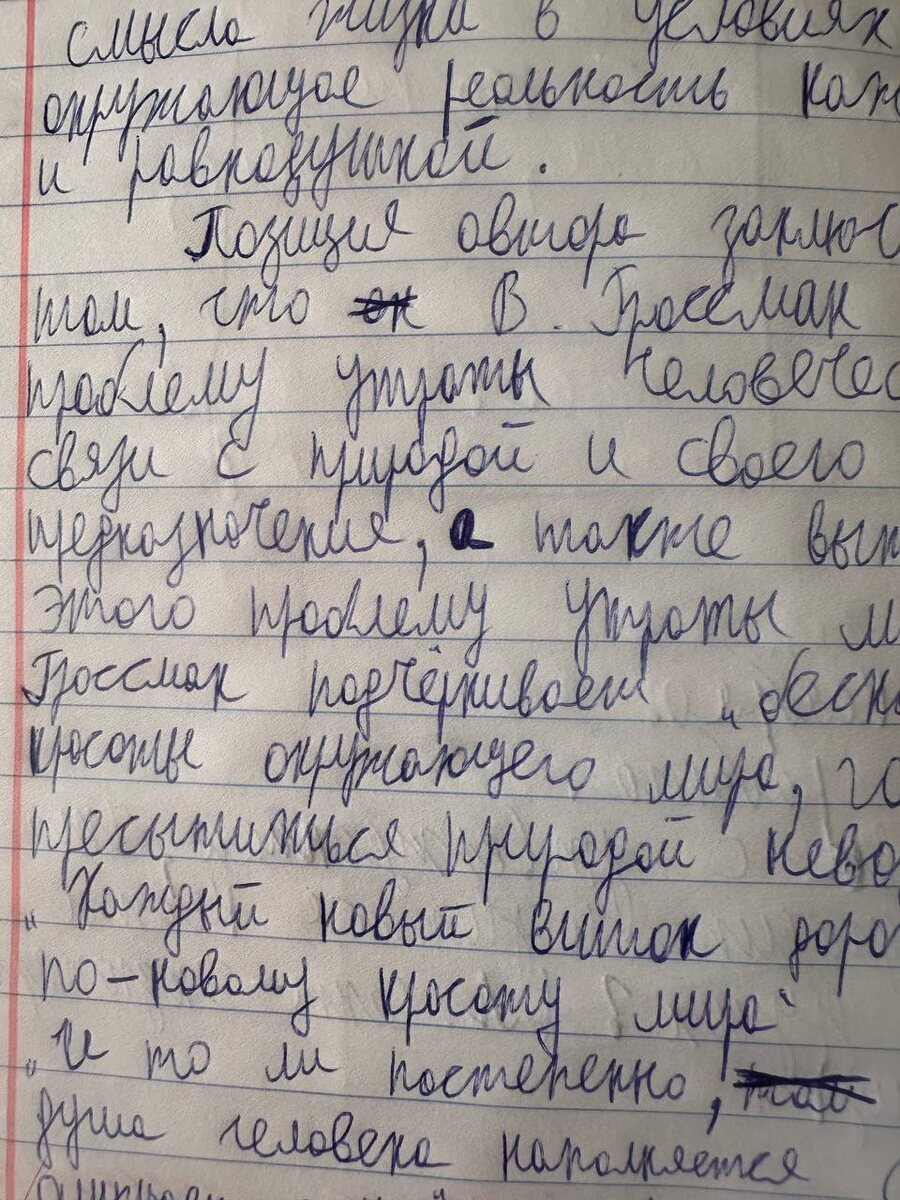 смысла жизни в условиях
окружающая реальность каж
и равнодушной.
Позиция автора заключ
том, что он В. Гроссман
проблему утраты человечес
связи с природой и своего
предназначения, а также вып
этого проблему утраты м
Гроссман подчёркивает „беск
красоты окружающего мира, го
пресытиться природой нево
„Каждый новый виток доро
по-новому красоту мира“
„И то ли постепенно,
душа человека наполняется